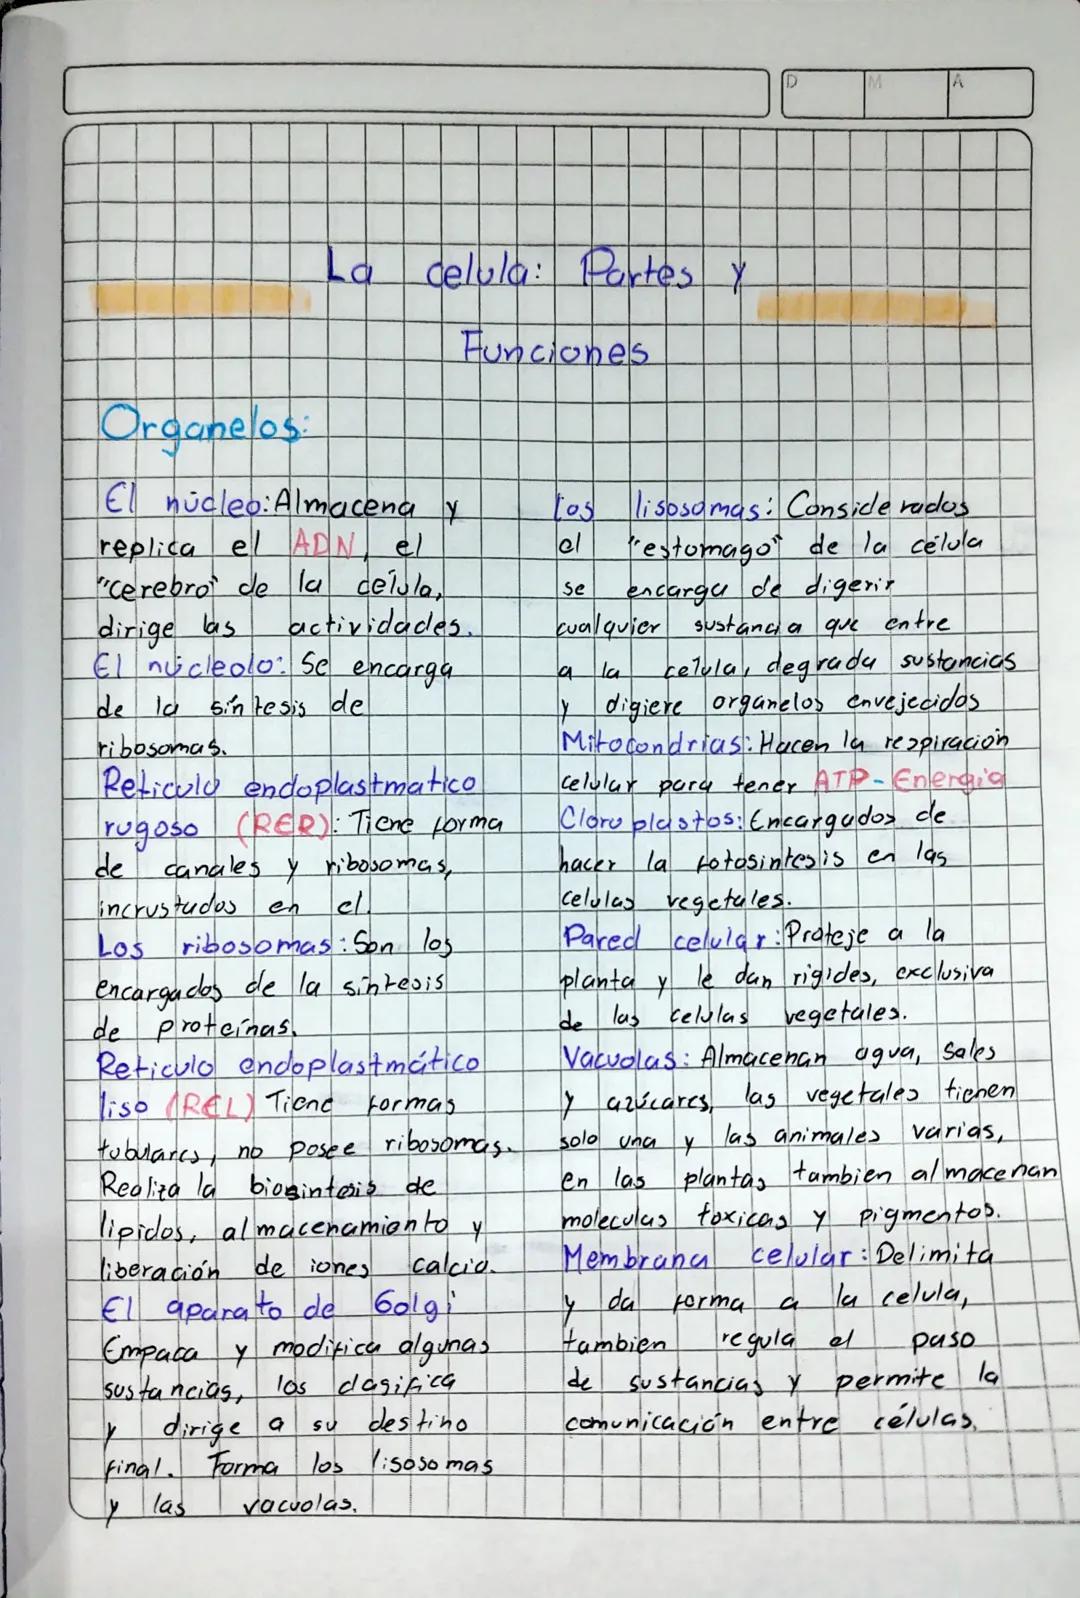 D M A
La celula: Partes y
Funciones
Organelos:
El núcleo: Almacena y
replica el ADN, el
"cerebro" de la célula,
dirige las actividades.
El núcleolo: Se encarga
de la síntesis de
ribosomas.
Reticulo endoplastmatico
rugoso (RER): Tiene forma
de canales y ribosomas,
incrustados en el.
Los ribosomas: Son los
encargados de la síntesis
de proteínas.
Reticulo endoplastmático
liso (REL) Tiene formas
tubulares, no posee ribosomas.
Realiza la biosintesis de
lipidos, almacenamiento y
liberación de iones calcio.
El aparato de Golgi
Empaca y modifica algunas
sustancias, los clasifica
y dirige a su destino
final. Forma los lisosomas
y las vacuolas.
Los lisosomas: Considerados
el "estomago" de la célula
se encarga de digerir
cualquier sustancia que entre
a la celula, degrada sustancias
y digiere organelos envejecidos
Mitocondrias: Hacen la respiración
celular para tener ATP-Energia
Cloroplastos: Encargados de
hacer la fotosintesis en las
celulas vegetales.
Pared celular: Proteje a la
planta y le dan rigides, exclusiva
de las celulas vegetales.
Vacuolas: Almacenan agua, Sales
y azúcares, las vegetales tienen
solo una y las animales varias,
en las plantas tambien almacenan
moleculas toxicas y pigmentos.
Membrana celular: Delimita
y da forma a la celula,
tambien regula el paso
de sustancias y permite la
comunicación entre células.